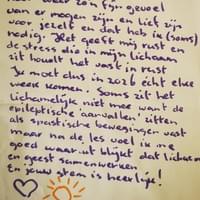 voor zo'n fijn gevoel
van er mogen zijn en lief zijn
voor jezelf en dat heb ik (soms)
nodig. Het geeft mij rust en
de stress die in mijn lichaam
zit houdt het vast in rust
Je moet dus in 2026 echt elke
week komen. Soms zit het
lichamelijk niet mee want de
epileptische 'aanvallen' zitten
als spastische bewegingen vast
maar na de les voel ik me
goed waaruit blijkt dat lichaam
en geest samenwerken
En jouw stem is heerlijk!